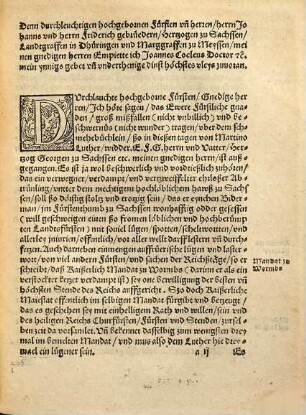 Den durchleuchtigen hochgebornen Fürsten vn̄ herren/herrn Jo
hanns vnd herrn Friderich gebrüdern/Hertzogen zu Sachssen/
Landtgraffen in Dhüringen vnd Marggraffen zu Meyssen/mei
nen gnedigen herren Empiette ich Joannes Cocleus Doctor
mein ynnigs gebet vn̄ vnderthenige dinst höchstes vleys zuuoran.
DUrchlauchte hochgeborne Fürsten/Gnedige her
ren/Ich höre sagen/das Ewere Fürstliche gna
den/groß mißfallen (nicht vnbillich) vnd be
schwernus (nicht wunder) tragen/ob er dem
schmehebüchlein/so in disen tagen von Martino
Luther/widder E. F. G. herrn vnd Vatter/her
tzog Georgen zu Sachssen etc. meinen gnedigen herrn/ist auß
gegangen. Es ist ja wol beschwerlich vnd verdrießlich zuhörē/
das ein verworgner/verdampt/vnd vertzweiffelter ehiloser Ab
trünling/vnter dem mechtigen hochlöblichem hawß zu Sach
sen/soll so hön deißig stoltz vnd trotzig sein/das er eynchen Bider
man/im Fürstenthumb zu Sachssen wonhafftig odder gesessen
(will geschweigen eineu so fromen löblichen vnd hochberüm
pten Landtsfürsten) mit souiel lügen/spotten/schelworten/
vnd allerley iniurien/offentlich/vor aller welt darff lestern vn̄ dur
fregen. Auch darneben einmengen auffrürische lügen vnd laster
wort/von viel andern Fürsten/vnd sachen der Reichstäge/so er
schreibe/daß Kaiserlich Mandat zu Wormbs (darinn er als ein
verstockter Ketzer verdampt ist) sey one bewilligung der besten vn̄
höchsten Stende des Reichs auffgericht. So doch Kaiserliche
Maiestat offentlich im selbigen Mandat fürgibt vnd bezeugt/
das es geschehen sey mit einhelligem Rath vnd willen/sein vnd
des heiligen Reichs Churfürsten/Fürsten vnd Stenden/zursel-
ben zeit da vorsamlet. Vn̄ kewmer daselbig zum wenigsten drey
mal im bemelten Mandat/vnd mus also dem Luther hie drey-
mal ein lügener sein.
Mandat zu
Wormbs
a ij
Es